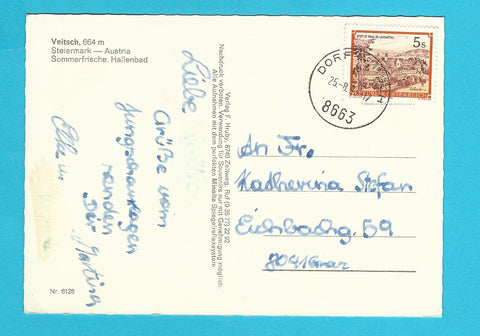 Veitsch, 664 m
Steiermark — Austria
Sommerfrische, Hallenbad
Liebe
Grüße vom
Jungscharlager
senden
Nr. 6128
Verlag F. Hruby, 8740 Zeltweg, Ruf (0 35 77) 22 92
Nachdruck verboten. Verwendung für Souvenirs nur mit Genehmigung möglich.
Alle Aufnahmen mit dem perfekten Minolta Spiegelreflexsystem
5s
REPUBLIK ÖSTERREICH
DORF
8663
An Fr.
Katherina Stefan
Eichbachg. 59
8041 Graz